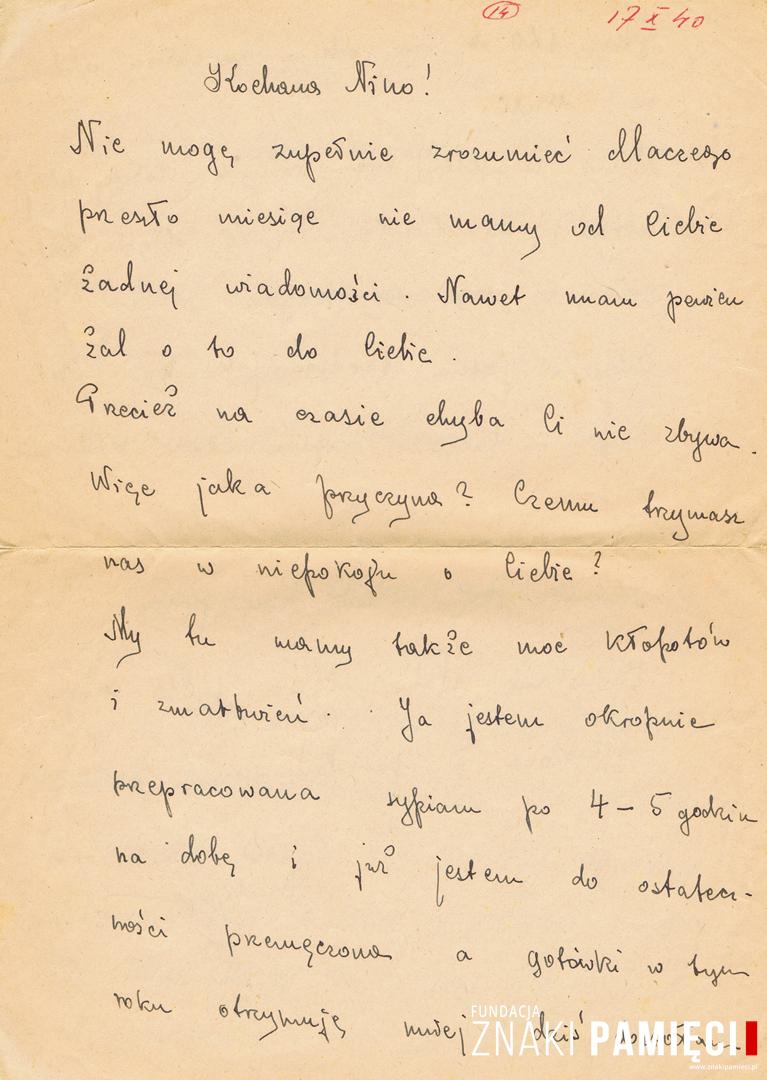 14
17 X 40
Kochana Nino!
Nie mogę zupełnie zrozumieć dlaczego
przeszło miesiąc nie mamy od Ciebie
żadnej wiadomości. Nawet mam pewien
żal o to do Ciebie.
Przecież na czasie chyba Ci nie zbywa.
Więc jaka przyczyna? Czemu trzymasz
nas w niepokoju o Ciebie?
My tu mamy także moc kłopotów
i zmartwień. Ja jestem okropnie
przepracowana sypiam po 4 – 5 godzin
na dobę i już jestem do ostatecz-
ności przemęczona a gotówki w tym
roku otrzymuję mniej dziś
FUNDACJA
ZNAKI PAMIĘCI
www.znakipamieci.pl